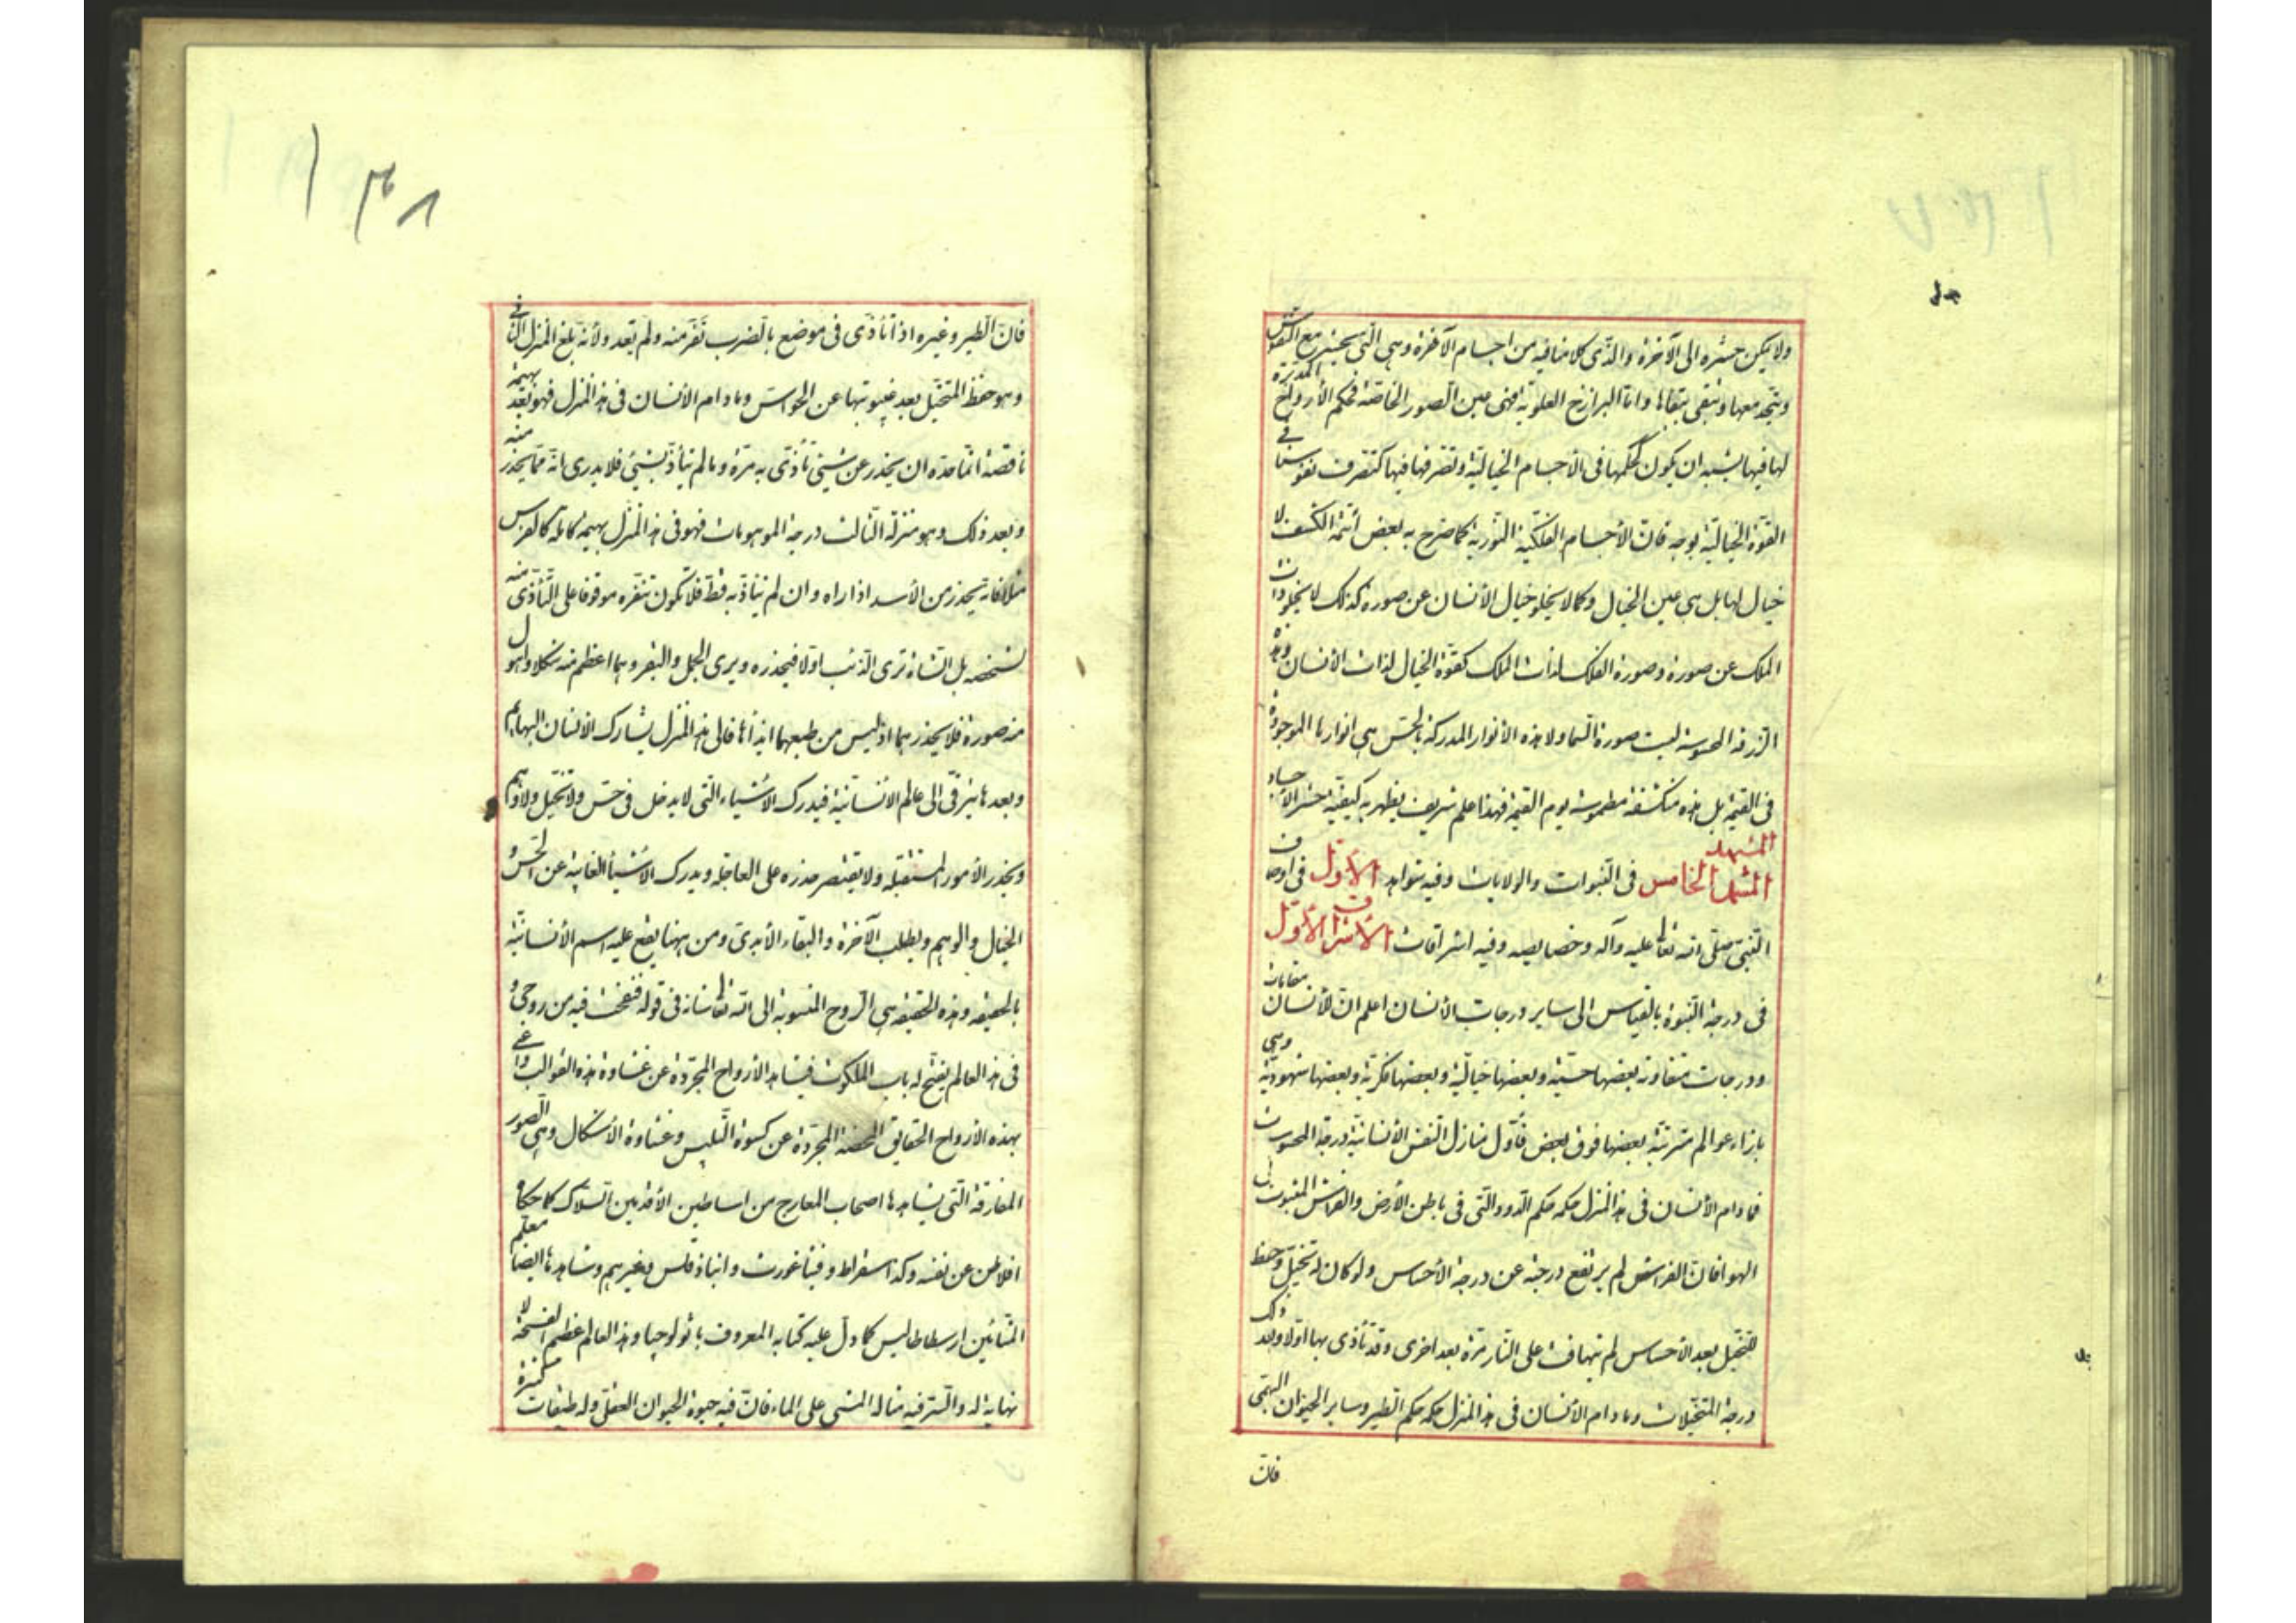 ولا يمكن حشره الى الآخرة والذى كلامنا فيه من اجسام الآخرة وهى التى تحشر مع النفوس
وتتحد معها وتبقى ببقائها واما البرازخ العلوية فهى عين الصور الخاصة فحكم الأرواح المدبرة
لها فيها يشبه ان يكون كحكمها فى الاجسام الخيالية وتصرفها فيها كتصرف نفوسنا فى
القوة الخيالية بوجه فان الأجسام الفلكية النورية كما صرح به بعض أئمة الكشف لا
خيال لها بل هى عين الخيال وكما لا يخلو خيال الأنسان عن صورة كذلك لا يخلو ذات
الملك عن صورة وصورة الفلك لذات الملك كقوة الخيال لذات الأنسان وهذه
الزرقة المحسوسة ليست صورة السماء ولا هذه الأنوار المدركة بالحس هى انوارها الموجودة
فى القيمة بل هذه منكشفة مطموسة يوم القيمة فهذا علم شريف يظهر به كيفية حشر الاجساد
المشهد
المشهد الخامس فى النبوات والولايات وفيه شواهد الأول فى اوصاف
النبى صلى الله تعالى عليه وآله وخصايصه وفيه اشراقات الأشراق الأول
فى درجة النبوة بالقياس الى ساير درجات الأنسان اعلم ان للأنسان مقامات
ودرجات متفاوته بعضها حسية وبعضها خيالية وبعضها فكرية وبعضها شهودية وهى
بازاء عوالم مترتبة بعضها فوق بعض فأول منازل النفس الأنسانية درجة المحسوسات
فما دام الأنسان فى هذا المنزل حكمه حكم الدود التى فى باطن الأرض والفراش المبثوث فى
الهوا فان الفراش لم يرتفع درجته عن درجة الأحساس ولو كان له تخيل وحفظ
للتخيل بعد الأحساس لم يتهافت على النار مرة بعد اخرى وقد تأذى بها اولا وبعد ذلك
درجة المتخيلات وما دام الأنسان فى هذا المنزل حكمه حكم الطير وساير الحيوان البهمى
فان
۱۳۸
فان الطير وغيره اذا تأذى فى موضع بالضرب نفر منه ولم يعد ولأنه بلغ المنزل الثانى
وهو حفظ المتخيل بعد غيبوبتها عن الحواس وما دام الأنسان فى هذا المنزل فهو بعد بهيمة
ناقصة انما حده ان يحذر عن شيئ تأذى به مرة وما لم يتأذ بشيئ فلا يدرى انه مما يحذر منه
وبعد ذلك وهو منزلة الثالث درجة الموهومات فهو فى هذا المنزل بهيمة كاملة كالفرس
مثلا فانه يحذر من الأسد اذا راه وان لم يتأذ به قط فلا تكون تنفره موقوفا على التأذى منه
لشخصه بل الشاة ترى الذئب اولا فيحذره ويرى الجمل والبقر وهما اعظم منه شكلا واهول
منه صورة فلا يحذرهما اذ ليس من طبعهما ايذاءها فالى هذا المنزل يشارك الأنسان البهايم
وبعد هذا يترقى الى عالم الأنسانية فيدرك الأشياء التى لا يدخل فى حس ولا تخيل ولا وهم
ويحذر الأمور المستقبلة ولا يقتصر حذره على العاجلة ويدرك الأشياء الغايبة عن الحس و
الخيال والوهم ويطلب الآخرة والبقاء الأبدى ومن هيهنا يقع عليه اسم الأنسانية
بالحقيقة وهذه الحقيقة هى الروح المنسوبة الى الله تعالى شانه فى قوله فنفخت فيه من روحى و
فى هذا العالم يفتح له باب الملكوت فيشاهد الأرواح المجردة عن غشاوة هذه القوالب واعنى
بهذه الارواح الحقايق المحضة المجردة عن كسوة التلبيس وغشاوة الأشكال وهى الصور
المفارقة التى يشاهدها اصحاب المعارج من اساطين الأقدمين السلاك كما حكاه
افلاطن عن نفسه وكذا سقراط وفيثاغورث وانباذقلس وغيرهم وشاهدها ايضا معلم
المشائين ارسطاطاليس كما دل عليه كتابه المعروف باثولوجيا وهذا العالم عظيم الفسحة لا
نهاية له والسر فيه مثاله المشى على الماء فان فيه حيوة الحيوان العقلى وله طبقات كثيرة